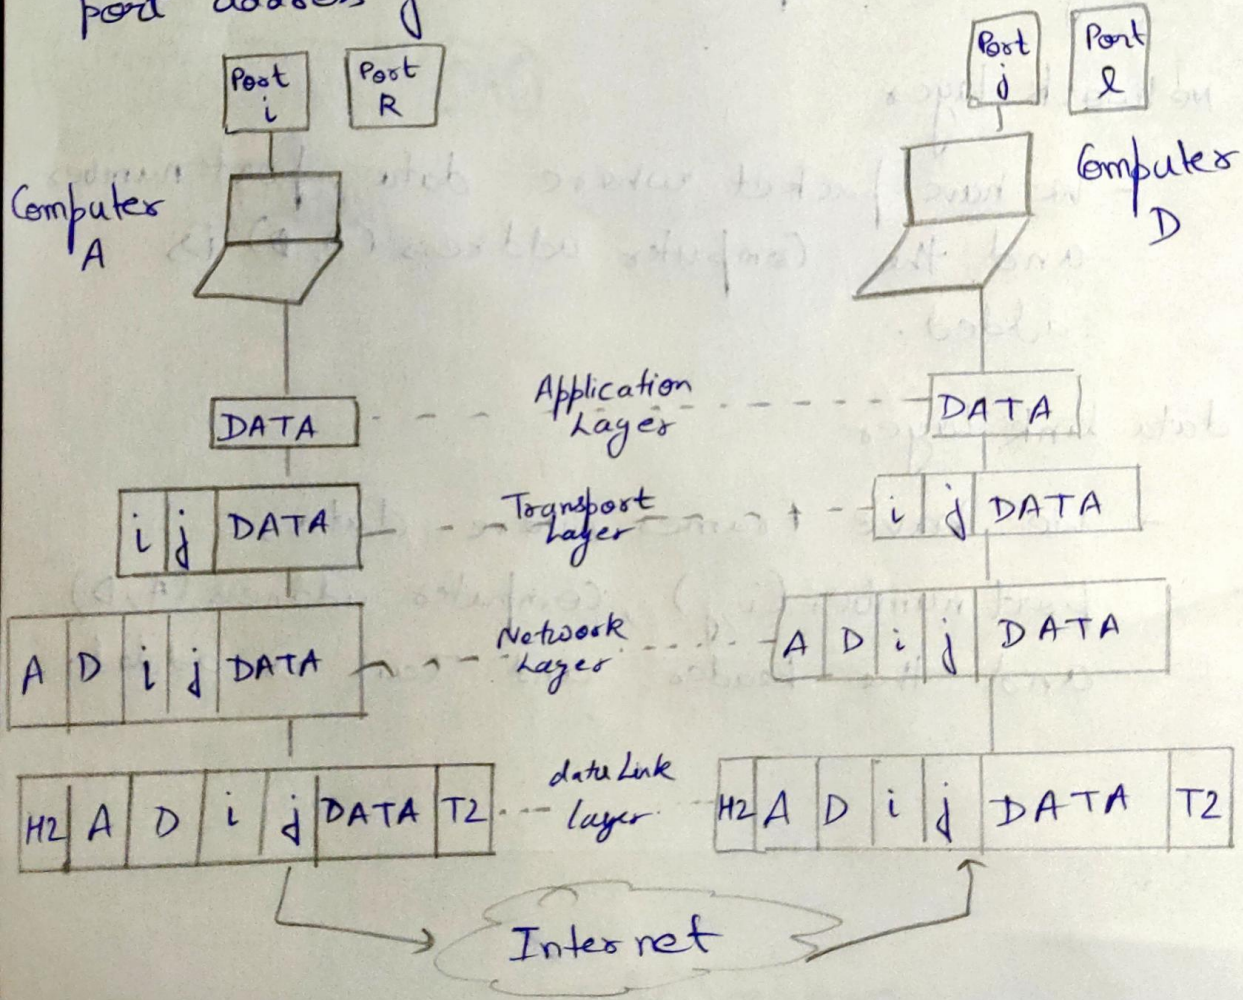 port address j
Port
i
Port
R
Port
j
Port
l
Computer
A
Computer
D
DATA
Application
Layer
DATA
i j DATA
Transport
Layer
i j DATA
A D i j DATA
Network
Layer
A D i j DATA
H2 A D i j DATA T2
data Link
layer
H2 A D i j DATA T2
Internet